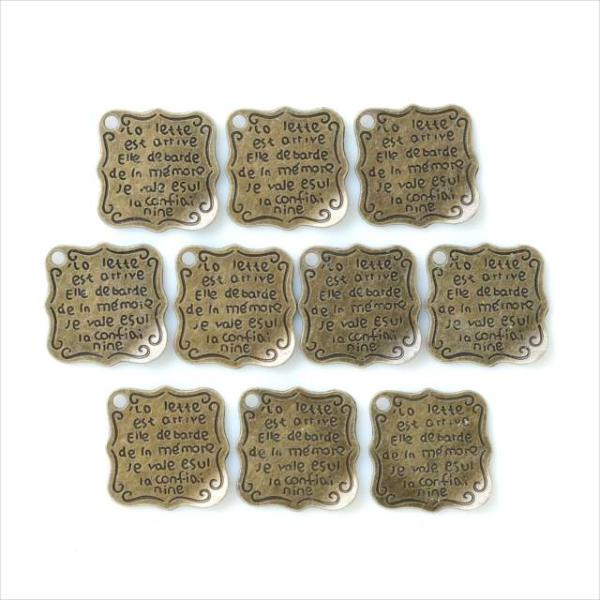 La lette
est arrive
Elle debarde
de ln mémore
je vale esul
la confiai
nine
La lette
est arrive
Elle debarde
de ln mémore
je vale esul
la confiai
nine
La lette
est arrive
Elle debarde
de ln mémore
je vale esul
la confiai
nine
La lette
est arrive
Elle debarde
de ln mémore
je vale esul
la confiai
nine
La lette
est arrive
Elle debarde
de ln mémore
je vale esul
la confiai
nine
La lette
est arrive
Elle debarde
de ln mémore
je vale esul
la confiai
nine
La lette
est arrive
Elle debarde
de ln mémore
je vale esul
la confiai
nine
La lette
est arrive
Elle debarde
de ln mémore
je vale esul
la confiai
nine
La lette
est arrive
Elle debarde
de ln mémore
je vale esul
la confiai
nine
La lette
est arrive
Elle debarde
de ln mémore
je vale esul
la confiai
nine